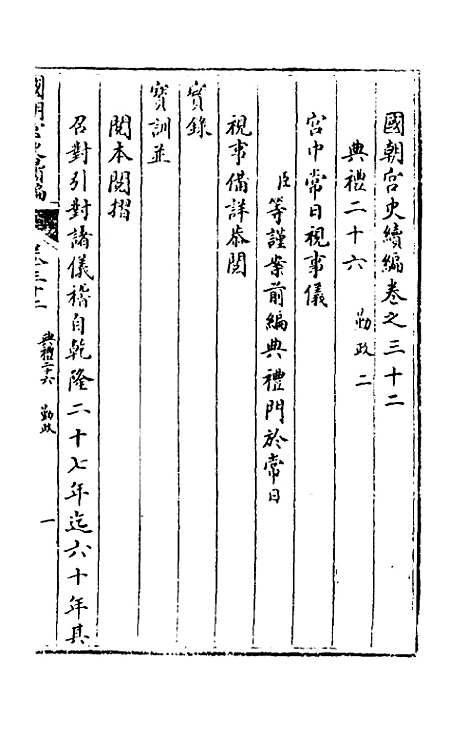 國朝宮史續編卷之三十二
典禮二十六 勤政二
宮中常日視事儀
臣等謹案前編典禮門於常日
視事備詳恭閱
實錄
寶訓並
閱本閱摺
召對引對諸儀稽自乾隆二十七年迄六十年其
國朝宮史續編 卷三十二 典禮二十六 勤政 一